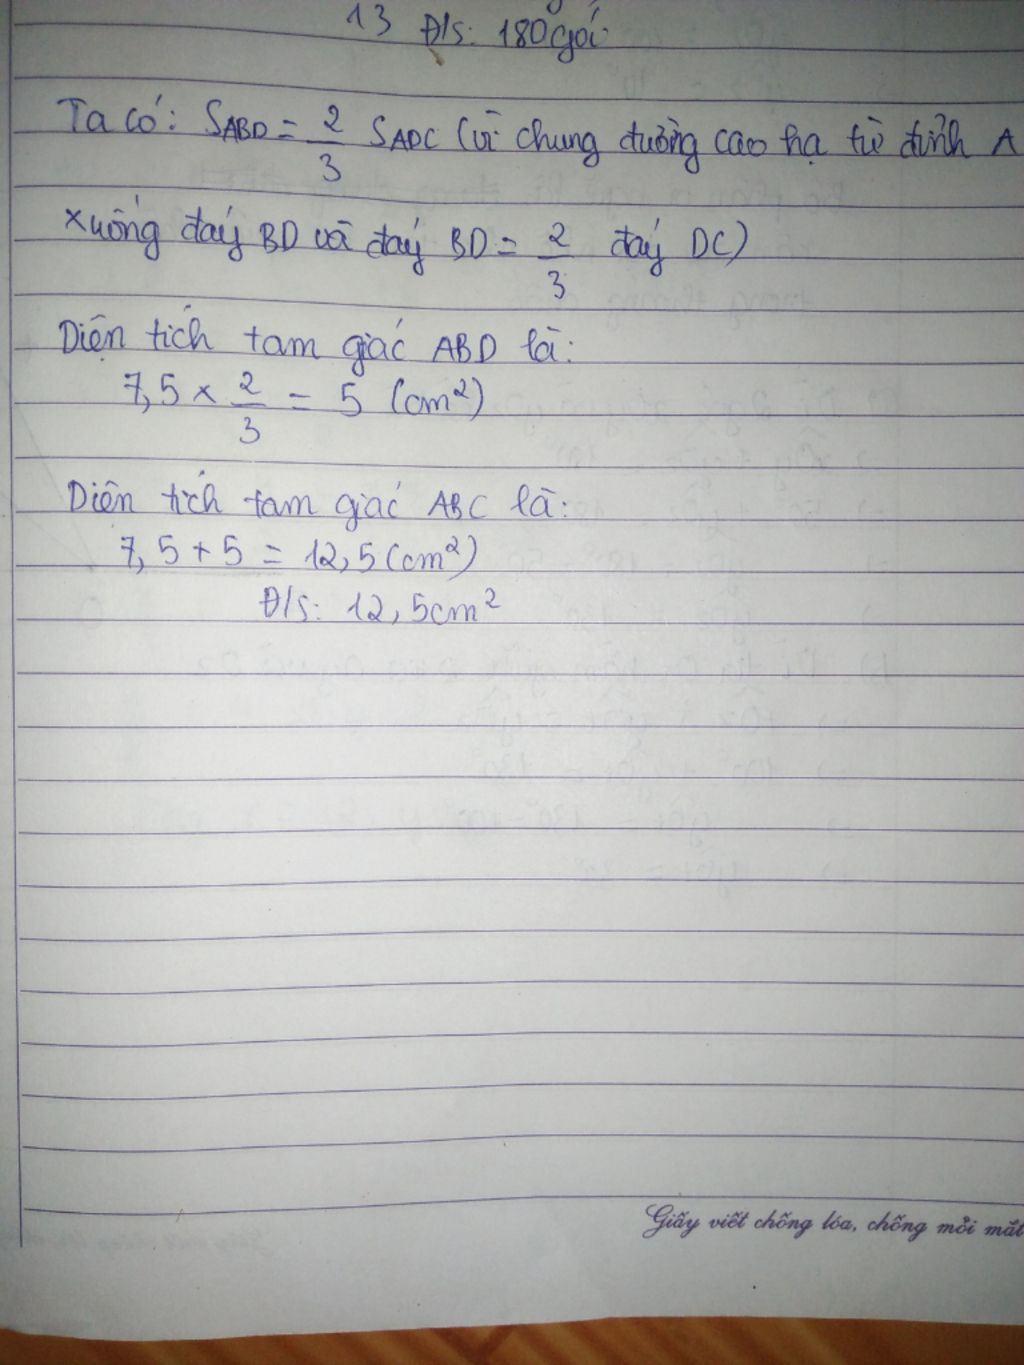 13 Đ/s: 180 gói
Ta có: SABD = 2/3 SADC (vì chung đường cao hạ từ đỉnh A
xuống đáy BD và đáy BD = 2/3 đáy DC)
Diện tích tam giác ABD là:
7,5 × 2/3 = 5 (cm²)
Diện tích tam giác ABC là:
7,5 + 5 = 12,5 (cm²)
Đ/s: 12,5cm²
Giấy viết chống lóa, chống mỏi mắt